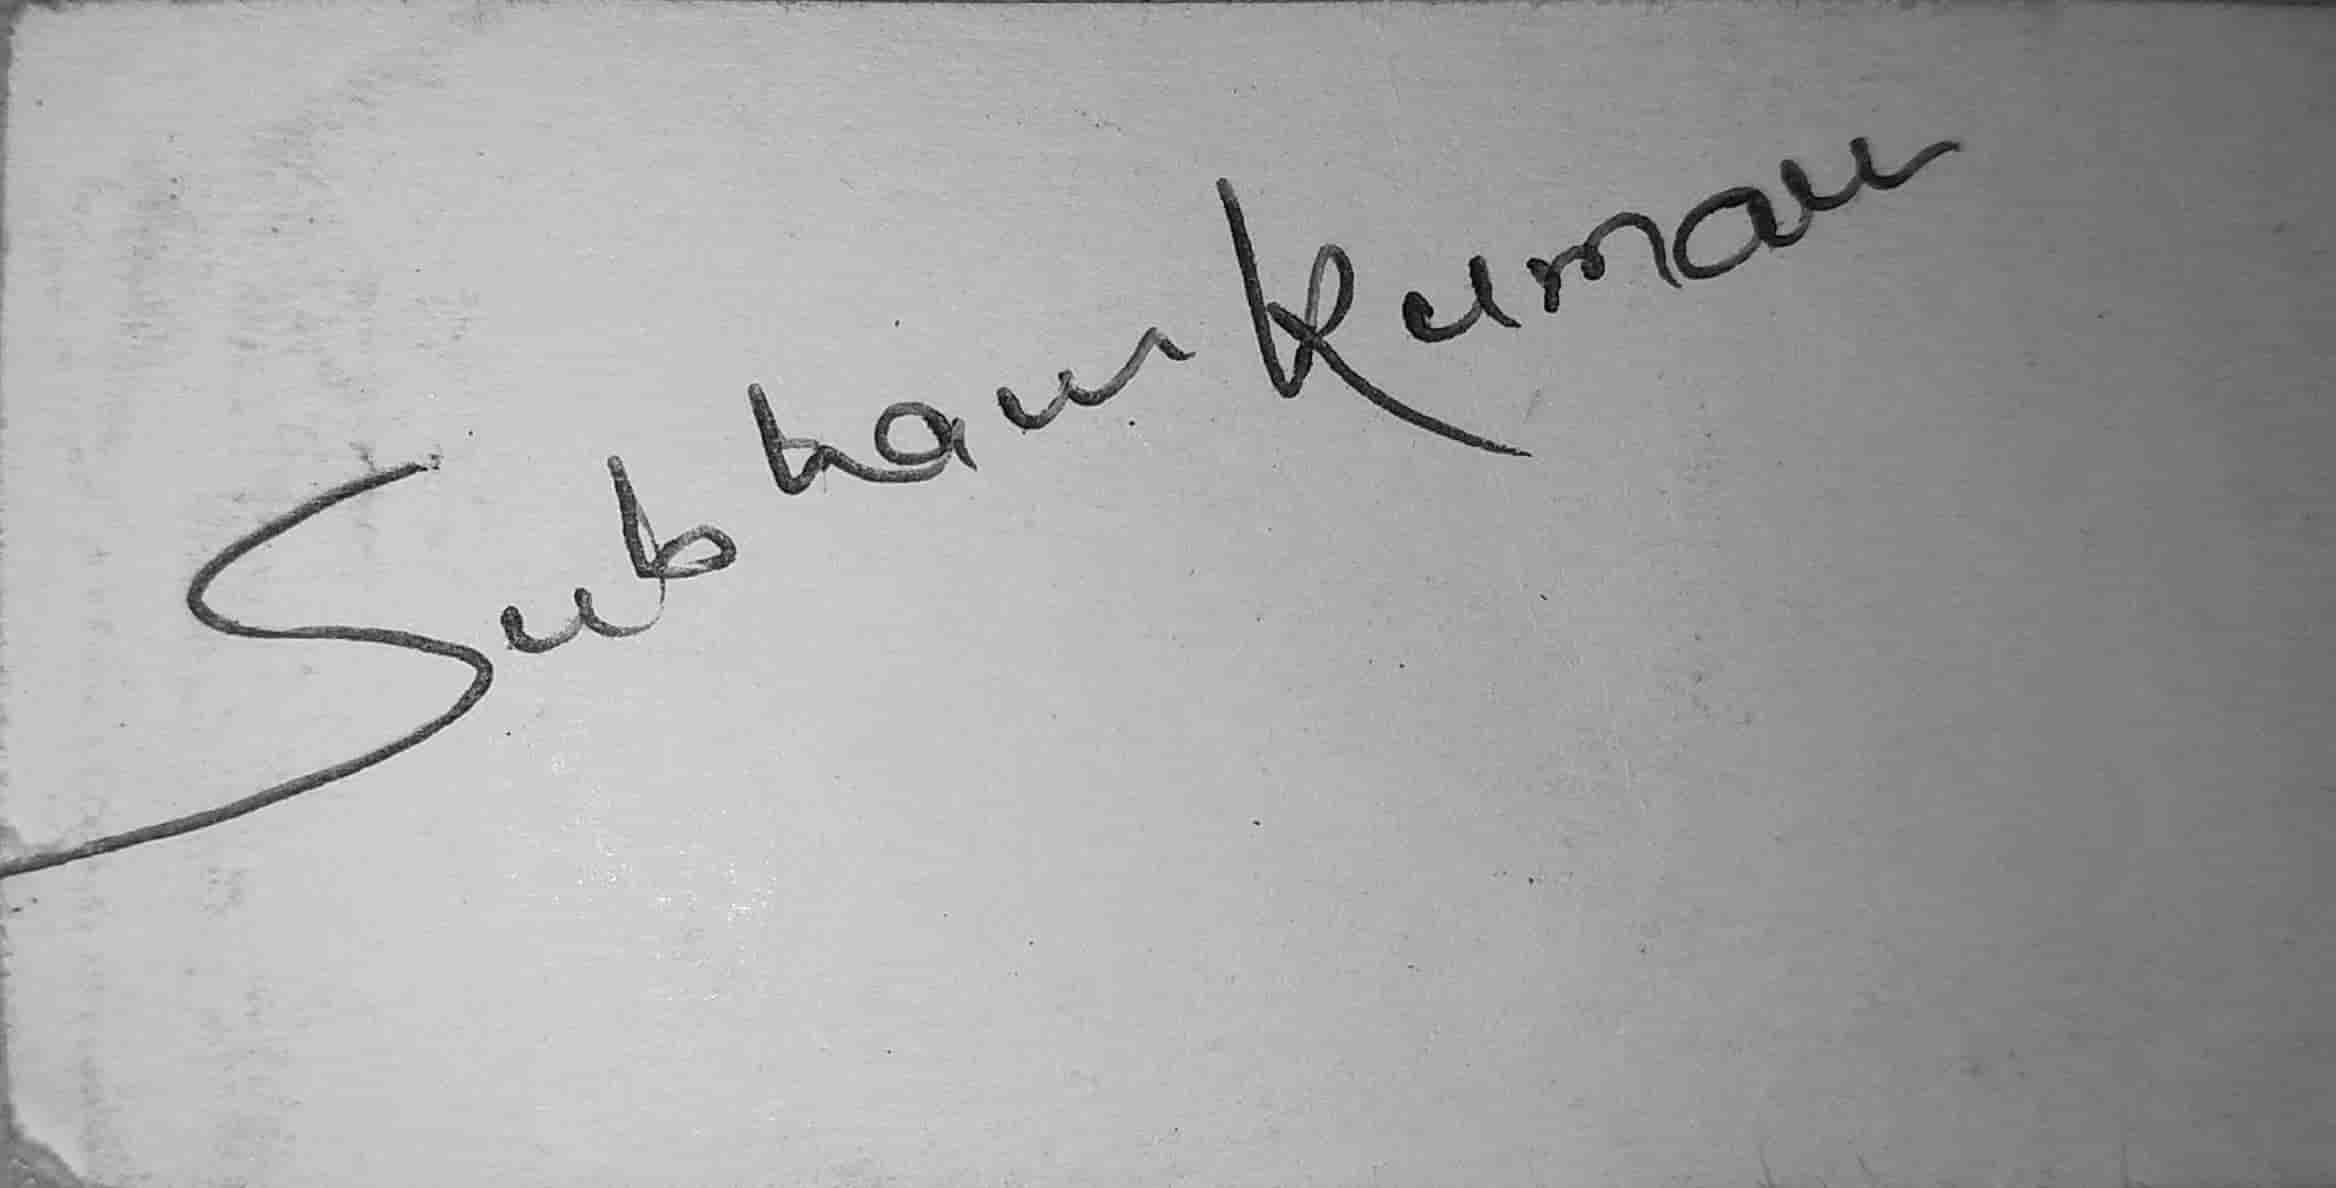 Subham Kumar